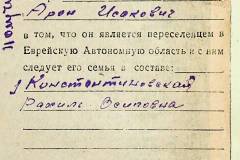 Получи
Арон Исакович
в том, что он является переселенцем в
Еврейскую Автономную область и с ним
следует его семья в составе:
Константиновская
Рахиль Осиповна